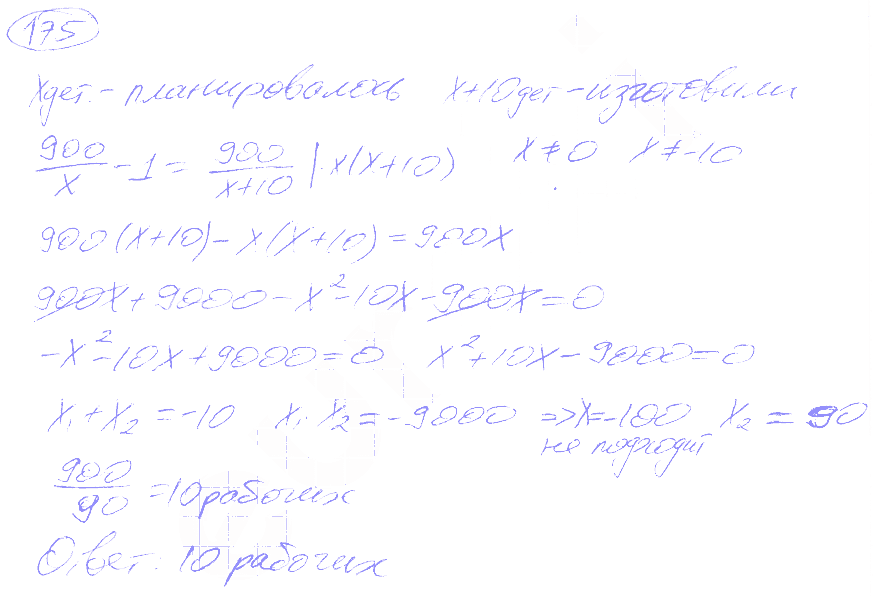 175
Xдет. - планировалось x+10дет - изготовили
900/x - 1 = 900/(x+10) | · x(x+10) x ≠ 0 x ≠ -10
900(x+10) - x(x+10) = 900x
900x + 9000 - x² - 10x - 900x = 0
-x² - 10x + 9000 = 0 x² + 10x - 9000 = 0
x₁ + x₂ = -10 x₁ · x₂ = -9000 => x = -100 x₂ = 90
не подходит
900/90 = 10 рабочих
Ответ: 10 рабочих